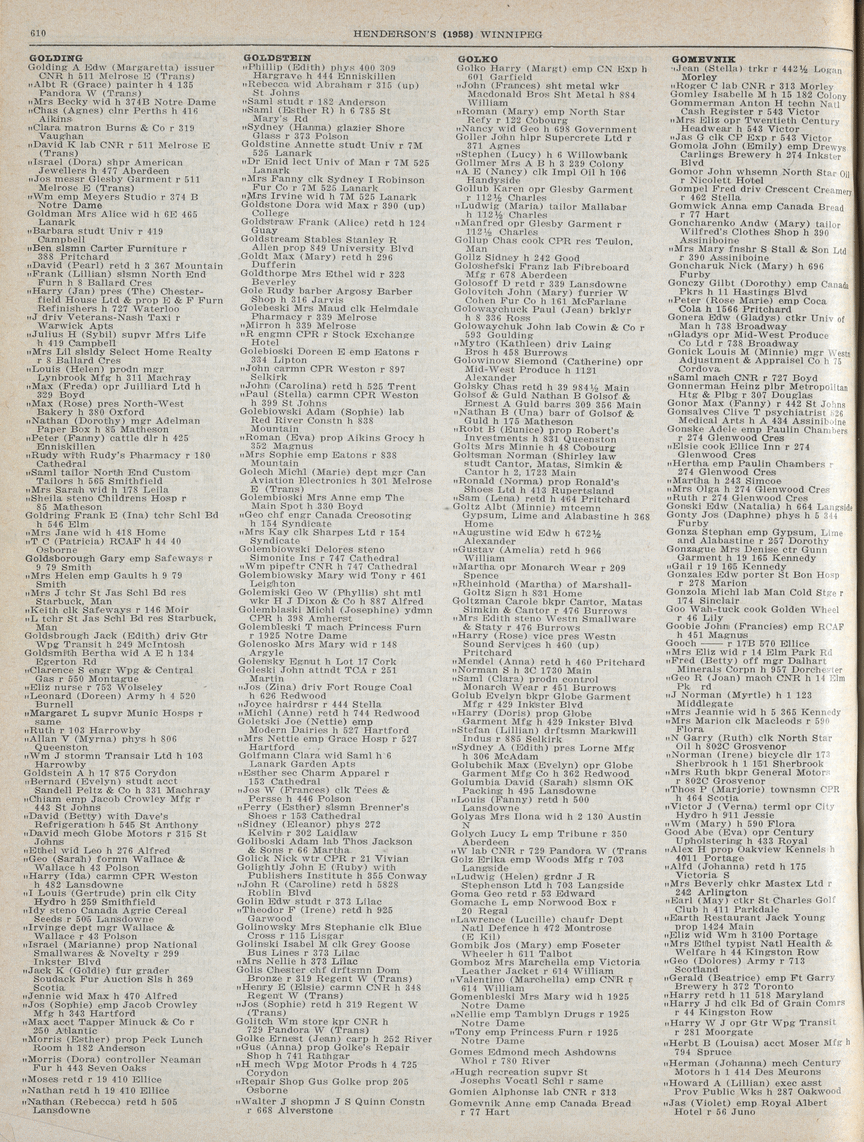 610
HENDERSON'S (1958) WINNIPEG
GOLDING
Golding A Edw (Margaretta) issuer
CNR h 511 Melrose E (Trans)
„Albt R (Grace) painter h 4 135
Pandora W (Trans)
„Mrs Becky wid h 374B Notre Dame
„Chas (Agnes) clnr Perths h 416
Aikins
„Clara matron Burns & Co r 319
Vaughan
„David K lab CNR r 511 Melrose E
(Trans)
„Israel (Dora) shpr American
Jewellers h 477 Aberdeen
„Jos messr Glesby Garment r 511
Melrose E (Trans)
„Wm emp Meyers Studio r 374 B
Notre Dame
Goldman Mrs Alice wid h 6E 465
Lanark
„Barbara studt Univ r 419
Campbell
„Ben slsmn Carter Furniture r
388 Pritchard
„David (Pearl) retd h 3 367 Mountain
„Frank (Lillian) slsmn North End
Furn h 8 Ballard Cres
„Harry (Jan) pres (The) Chester-
field House Ltd & prop E & F Furn
Refinishers h 727 Waterloo
„J driv Veterans-Nash Taxi r
Warwick Apts
„Julius H (Sybil) supvr Mfrs Life
h 419 Campbell
„Mrs Lil slsldy Select Home Realty
r 8 Ballard Cres
„Louis (Helen) prodn mgr
Lynbrook Mfg h 311 Machray
„Max (Freda) opr Juilliard Ltd h
329 Boyd
„Max (Rose) pres North-West
Bakery h 380 Oxford
„Nathan (Dorothy) mgr Adelman
Paper Box h 85 Matheson
„Peter (Fanny) cattle dlr h 425
Enniskillen
„Rudy with Rudy's Pharmacy r 180
Cathedral
„Saml tailor North End Custom
Tailors h 565 Smithfield
„Mrs Sarah wid h 178 Leila
„Sheila steno Childrens Hosp r
85 Matheson
Goldring Frank E (Ina) tchr Schl Bd
h 546 Elm
„Mrs Jane wid h 418 Home
„T C (Patricia) RCAF h 44 40
Osborne
Goldsborough Gary emp Safeways r
9 79 Smith
„Mrs Helen emp Gaults h 9 79
Smith
„Mrs J tchr St Jas Schl Bd res
Starbuck, Man
„Keith clk Safeways r 146 Moir
„L tchr St Jas Schl Bd res Starbuck,
Man
Goldsbrough Jack (Edith) driv Gtr
Wpg Transit h 249 McIntosh
Goldsmith Bertha wid A E h 134
Egerton Rd
„Clarence S engr Wpg & Central
Gas r 550 Montague
„Eliz nurse r 753 Wolseley
„Leonard (Doreen) Army h 4 520
Burnell
„Margaret L supvr Munic Hosps r
same
„Ruth r 103 Harrowby
„Allan V (Myrna) phys h 806
Queenston
„Wm J stormn Transair Ltd h 103
Harrowby
Goldstein A h 17 875 Corydon
„Bernard (Evelyn) studt acct
Sandell Peltz & Co h 331 Machray
„Chiam emp Jacob Crowley Mfg r
443 St Johns
„David (Betty) with Dave's
Refrigeration h 545 St Anthony
„David mech Globe Motors r 315 St
Johns
„Ethel wid Leo h 276 Alfred
„Geo (Sarah) formn Wallace &
Wallace h 43 Polson
„Harry (Ida) carmn CPR Weston
h 482 Lansdowne
„I Louis (Gertrude) prin clk City
Hydro h 259 Smithfield
„Idy steno Canada Agric Cereal
Seeds r 505 Lansdowne
„Irvinge dept mgr Wallace &
Wallace r 43 Polson
„Israel (Marianne) prop National
Smallwares & Novelty r 299
Inkster Blvd
„Jack K (Goldie) fur grader
Soudack Fur Auction Sls h 369
Scotia
„Jennie wid Max h 470 Alfred
„Jos (Sophie) emp Jacob Crowley
Mfg h 343 Hartford
„Max acct Tapper Minuck & Co r
250 Atlantic
„Morris (Esther) prop Peck Lunch
Room h 182 Anderson
„Morris (Dora) controller Neaman
Fur h 443 Seven Oaks
„Moses retd r 19 410 Ellice
„Nathan retd h 19 410 Ellice
„Nathan (Rebecca) retd h 505
Lansdowne
GOLDSTEIN
„Phillip (Edith) phys 400 309
Hargrave h 444 Enniskillen
„Rebecca wid Abraham r 315 (up)
St Johns
„Saml studt r 182 Anderson
„Saml (Esther R) h 6 785 St
Mary's Rd
„Sydney (Hanna) glazier Shore
Glass r 373 Polson
Goldstine Annette studt Univ r 7M
525 Lanark
„Dr Enid lect Univ of Man r 7M 525
Lanark
„Mrs Fanny clk Sydney I Robinson
Fur Co r 7M 525 Lanark
„Mrs Irvine wid h 7M 525 Lanark
Goldstone Dora wid Max r 390 (up)
College
Goldstraw Frank (Alice) retd h 124
Guay
Goldstream Stables Stanley R
Allen prop 849 University Blvd
„Goldt Max (Mary) retd h 296
Dufferin
Goldthorpe Mrs Ethel wid r 323
Beverley
Gole Rudy barber Argosy Barber
Shop h 316 Jarvis
Golebeski Mrs Maud clk Helmdale
Pharmacy r 339 Melrose
„Mirron h 339 Melrose
„R engmn CPR r Stock Exchange
Hotel
Golebioski Doreen E emp Eatons r
334 Lipton
„John carmn CPR Weston r 897
Selkirk
„John (Carolina) retd h 525 Trent
„Paul (Stella) carmn CPR Weston
h 399 St Johns
Golebiowski Adam (Sophie) lab
Red River Constn h 838
Mountain
„Roman (Eva) prop Aikins Grocy h
352 Magnus
„Mrs Sophie emp Eatons r 838
Mountain
Golech Michl (Marie) dept mgr Can
Aviation Electronics h 301 Melrose
E (Trans)
Golembioski Mrs Anne emp The
Main Spot h 330 Boyd
„Geo chf engr Canada Creosoting
h 154 Syndicate
„Mrs Kay clk Sharpes Ltd r 154
Syndicate
Golembiowski Delores steno
Simonite Ins r 747 Cathedral
„Wm pipeftr CNR h 747 Cathedral
Golembiowsky Mary wid Tony r 461
Leighton
Golemiski Geo W (Phyllis) sht mtl
wkr H J Dixon & Co h 887 Alfred
Golemblaski Michl (Josephine) ydmn
CPR h 398 Amherst
Golembleski T mach Princess Furn
r 1925 Notre Dame
Golenosko Mrs Mary wid r 148
Argyle
Golensky Egnut h Lot 17 Cork
Goleski John attndt TCA r 251
Martin
„Jos (Zina) driv Fort Rouge Coal
h 626 Redwood
„Joyce hairdrsr r 444 Stella
„Michl (Anne) retd h 744 Redwood
Goletski Joe (Nettie) emp
Modern Dairies h 527 Hartford
„Mrs Nettie emp Grace Hosp r 527
Hartford
Golfmann Clara wid Saml h 6
Lanark Garden Apts
„Esther sec Charm Apparel r
153 Cathedral
„Jos W (Frances) clk Tees &
Persse h 446 Polson
„Perry (Esther) slsmn Brenner's
Shoes r 153 Cathedral
„Sidney (Eleanor) phys 272
Kelvin r 302 Laidlaw
Goliboski Adam lab Thos Jackson
& Sons r 66 Martha
Golick Nick wtr CPR r 21 Vivian
Golightly John E (Ruby) with
Publishers Institute h 355 Conway
„John R (Caroline) retd h 5828
Roblin Blvd
Golin Edw studt r 373 Lilac
„Theodor F (Irene) retd h 925
Garwood
Golinowsky Mrs Stephanie clk Blue
Cross r 115 Lisgar
Golinski Isabel M clk Grey Goose
Bus Lines r 373 Lilac
„Mrs Nellie h 373 Lilac
Golis Chester chf drftsmn Dom
Bronze r 319 Regent W (Trans)
„Henry E (Elsie) carmn CNR h 348
Regent W (Trans)
„Jos (Sophie) retd h 319 Regent W
(Trans)
Golitch Wm store kpr CNR h
729 Pandora W (Trans)
Golke Ernest (Jean) carp h 252 River
„Gus (Anna) prop Golke's Repair
Shop h 741 Rathgar
„H mech Wpg Motor Prods h 4 725
Corydon
„Repair Shop Gus Golke prop 205
Osborne
„Walter J shopmn J S Quinn Constn
r 668 Alverstone
GOLKO
Golko Harry (Margt) emp CN Exp h
601 Garfield
„John (Frances) sht metal wkr
Macdonald Bros Sht Metal h 884
William
„Roman (Mary) emp North Star
Refy r 122 Cobourg
„Nancy wid Geo h 698 Government
Goller John hlpr Supercrete Ltd r
371 Agnes
„Stephen (Lucy) h 6 Willowbank
Gollmer Mrs A B h 3 239 Colony
„A E (Nancy) clk Impl Oil h 106
Handyside
Gollub Karen opr Glesby Garment
r 112½ Charles
„Ludwig (Maria) tailor Mallabar
h 112½ Charles
„Manfred opr Glesby Garment r
112½ Charles
Gollup Chas cook CPR res Teulon,
Man
Gollz Sidney h 242 Good
Goloshefski Franz lab Fibreboard
Mfg r 678 Aberdeen
Golosoff D retd r 339 Lansdowne
Golovitch John (Mary) furrier W
Cohen Fur Co h 161 McFarlane
Golowaychuck Paul (Jean) brklyr
h 8 336 Ross
Golowaychuk John lab Cowin & Co r
593 Goulding
„Mytro (Kathleen) driv Laing
Bros h 458 Burrows
Golowinow Siemond (Catherine) opr
Mid-West Produce h 1121
Alexander
Golsky Chas retd h 39 984½ Main
Golsof & Guld Nathan B Golsof &
Ernest A Guld barrs 309 356 Main
„Nathan B (Una) barr of Golsof &
Guld h 175 Matheson
„Robt B (Eunice) prop Robert's
Investments h 831 Queenston
Golts Mrs Minnie h 48 Cobourg
Goltsman Norman (Shirley) law
studt Cantor, Matas, Simkin &
Cantor h 2, 1723 Main
„Ronald (Norma) prop Ronald's
Shoes Ltd h 413 Rupertsland
„Sam (Lena) retd h 464 Pritchard
Goltz Albt (Minnie) mtcemn
Gypsum, Lime and Alabastine h 368
Home
„Augustine wid Edw h 672½
Alexander
„Gustav (Amelia) retd h 966
William
„Martha opr Monarch Wear r 209
Spence
„Rheinhold (Martha) of Marshall-
Goltz Sign h 831 (W)
Goltzman Carole bkpr Cantor, Matas
Simkin & Cantor r 476 Burrows
„Mrs Edith steno Westn Smallware
& Staty r 476 Burrows
„Harry (Rose) vice pres Westn
Sound Services h 460 (up)
Pritchard
„Mendel (Anna) retd h 460 Pritchard
„Norman S h 2C 1730 Main
„Saml (Clara) prodn control
Monarch Wear r 451 Burrows
Golub Evelyn bkpr Globe Garment
Mfg r 429 Inkster Blvd
„Harry (Doris) prop Globe
Garment Mfg h 429 Inkster Blvd
„Stefan (Lillian) drftsmn Markwill
Indus r 885 Selkirk
„Sydney A (Edith) pres Lorne Mfg
h 306 McAdam
Golubchik Max (Evelyn) opr Globe
Garment Mfg Co h 362 Redwood
Golumbia David (Sarah) slsmn OK
Packing h 495 Lansdowne
„Louis (Fanny) retd h 500
Lansdowne
Golyas Mrs Ilona wid h 2 130 Austin
N
Golych Lucy L emp Tribune r 350
Aberdeen
„W lab CNR r 729 Pandora W (Trans
Golz Erika emp Woods Mfg r 703
Langside
„Ludwig (Helen) grdnr J R
Stephenson Ltd h 703 Langside
Goma Geo retd r 53 Edward
Gomache L emp Norwood Box r
20 Regal
„Lawrence (Lucille) chaufr Dept
Natl Defence h 472 Montrose
(E Kil)
Gombik Jos (Mary) emp Foseter
Wheeler h 611 Talbot
Gomboz Mrs Marchella emp Victoria
Leather Jacket r 614 William
„Valentino (Marchella) emp CNR r
614 William
Gomenbleski Mrs Mary wid h 1925
Notre Dame
„Nellie emp Tamblyn Drugs r 1925
Notre Dame
„Tony emp Princess Furn r 1925
Notre Dame
Gomes Edmond mech Ashdowns
Whol r 780 River
„Hugh recreation supvr St
Josephs Vocatl Schl r same
Gomien Alphonse lab CNR r 313
Gomevnik Anne emp Canada Bread
r 77 Hart
GOMEVNIK
„Jean (Stella) trkr r 442½ Logan
Morley
„Roger C lab CNR r 313 Morley
Gomley Isabelle M h 15 182 Colony
Gommerman Anton H techn Natl
Cash Register r 543 Victor
„Mrs Eliz opr Twentieth Century
Headwear h 543 Victor
„Jas G clk CP Exp r 543 Victor
Gomola John (Emily) emp Drewys
Carlings Brewery h 274 Inkster
Blvd
Gomor John whsemn North Star Oil
r Nicolett Hotel
Gompel Fred driv Crescent Creamery
r 462 Stella
Gomwick Anna emp Canada Bread
r 77 Hart
Goncharenko Andw (Mary) tailor
Wilfred's Clothes Shop h 390
Assiniboine
„Mrs Mary fnshr S Stall & Son Ltd
r 390 Assiniboine
Goncharuk Nick (Mary) h 696
Furby
Gonczy Gilbt (Dorothy) emp Canada
Pkrs h 11 Hastings Blvd
„Peter (Rose Marie) emp Coca
Cola h 1566 Pritchard
Gonera Edw (Gladys) ctkr Univ of
Man h 738 Broadway
„Gladys opr Mid-West Produce
Co Ltd r 738 Broadway
Gonick Louis M (Minnie) mgr Westn
Adjustment & Appraisel Co h 75
Cordova
„Saml mach CNR r 727 Boyd
Gonnerman Heinz plbr Metropolitan
Htg & Plbg r 307 Douglas
Gonor Max (Fanny) r 442 St Johns
Gonsalves Clive T psychiatrist 626
Medical Arts h A 434 Assiniboine
Gonske Adele emp Paulin Chambers
r 274 Glenwood Cres
„Elsie cook Ellice Inn r 274
Glenwood Cres
„Hertha emp Paulin Chambers r
274 Glenwood Cres
„Martha h 243 Simcoe
„Mrs Olga h 274 Glenwood Cres
„Ruth r 274 Glenwood Cres
Gonski Edw (Natalia) h 664 Langside
Gonty Jos (Daphne) phys h 5 344
Furby
Gonza Stephan emp Gypsum, Lime
and Alabastine r 257 Dorothy
Gonzague Mrs Denise ctr Gunn
Garment h 19 165 Kennedy
„Gail r 19 165 Kennedy
Gonzales Edw porter St Bon Hosp
r 278 Marion
Gonzola Michl lab Man Cold Stge r
174 Sinclair
Goo Wah-tuck cook Golden Wheel
r 46 Lily
Goobie John (Francies) emp RCAF
h 451 Magnus
Gooch —— r 17B 570 Ellice
„Mrs Eliz wid r 14 Elm Park Rd
„Fred (Betty) off mgr Dalhart
Minerals Corpn h 957 Dorchester
„Geo R (Joan) mach CNR h 14 Elm
Pk rd
„J Norman (Myrtle) h 1 123
Middlegate
„Mrs Jeannie wid h 5 365 Kennedy
„Mrs Marion clk Macleods r 590
Flora
„N Garry (Ruth) clk North Star
Oil h 802C Grosvenor
„Norman (Irene) bicycle dlr 173
Sherbrook h 1 151 Sherbrook
„Mrs Ruth bkpr General Motors
r 802C Grosvenor
„Thos P (Marjorie) townsmn CPR
h 464 Scotia
„Victor J (Verna) terml opr City
Hydro h 911 Jessie
„Wm (Mary) h 590 Flora
Good Abe (Eva) opr Century
Upholstering h 433 Royal
„Alex H prop Oakview Kennels h
4011 Portage
„Alfd (Johanna) retd h 175
Victoria S
„Mrs Beverly chkr Mastex Ltd r
242 Arlington
„Earl (May) ctkr St Charles Golf
Club h 411 Parkdale
„Earth Restaurant Jack Young
prop 1424 Main
„Eliz wid Wm h 3100 Portage
„Mrs Ethel typist Natl Health &
Welfare h 44 Kingston Row
„Geo (Dolores) Army r 713
Scotland
„Gerald (Beatrice) emp Ft Garry
Brewery h 372 Toronto
„Harry retd h 11 518 Maryland
„Harry J hd clk Bd of Grain Comrs
r 44 Kingston Row
„Harry W J opr Gtr Wpg Transit
r 281 Moorgate
„Herbt B (Louisa) acct Moser Mfg h
794 Spruce
„Herman (Johanna) mech Century
Motors h 1 414 Des Meurons
„Howard A (Lillian) exec asst
Prov Public Wks h 287 Oakwood
„Jas (Violet) emp Royal Albert
Hotel r 56 Juno